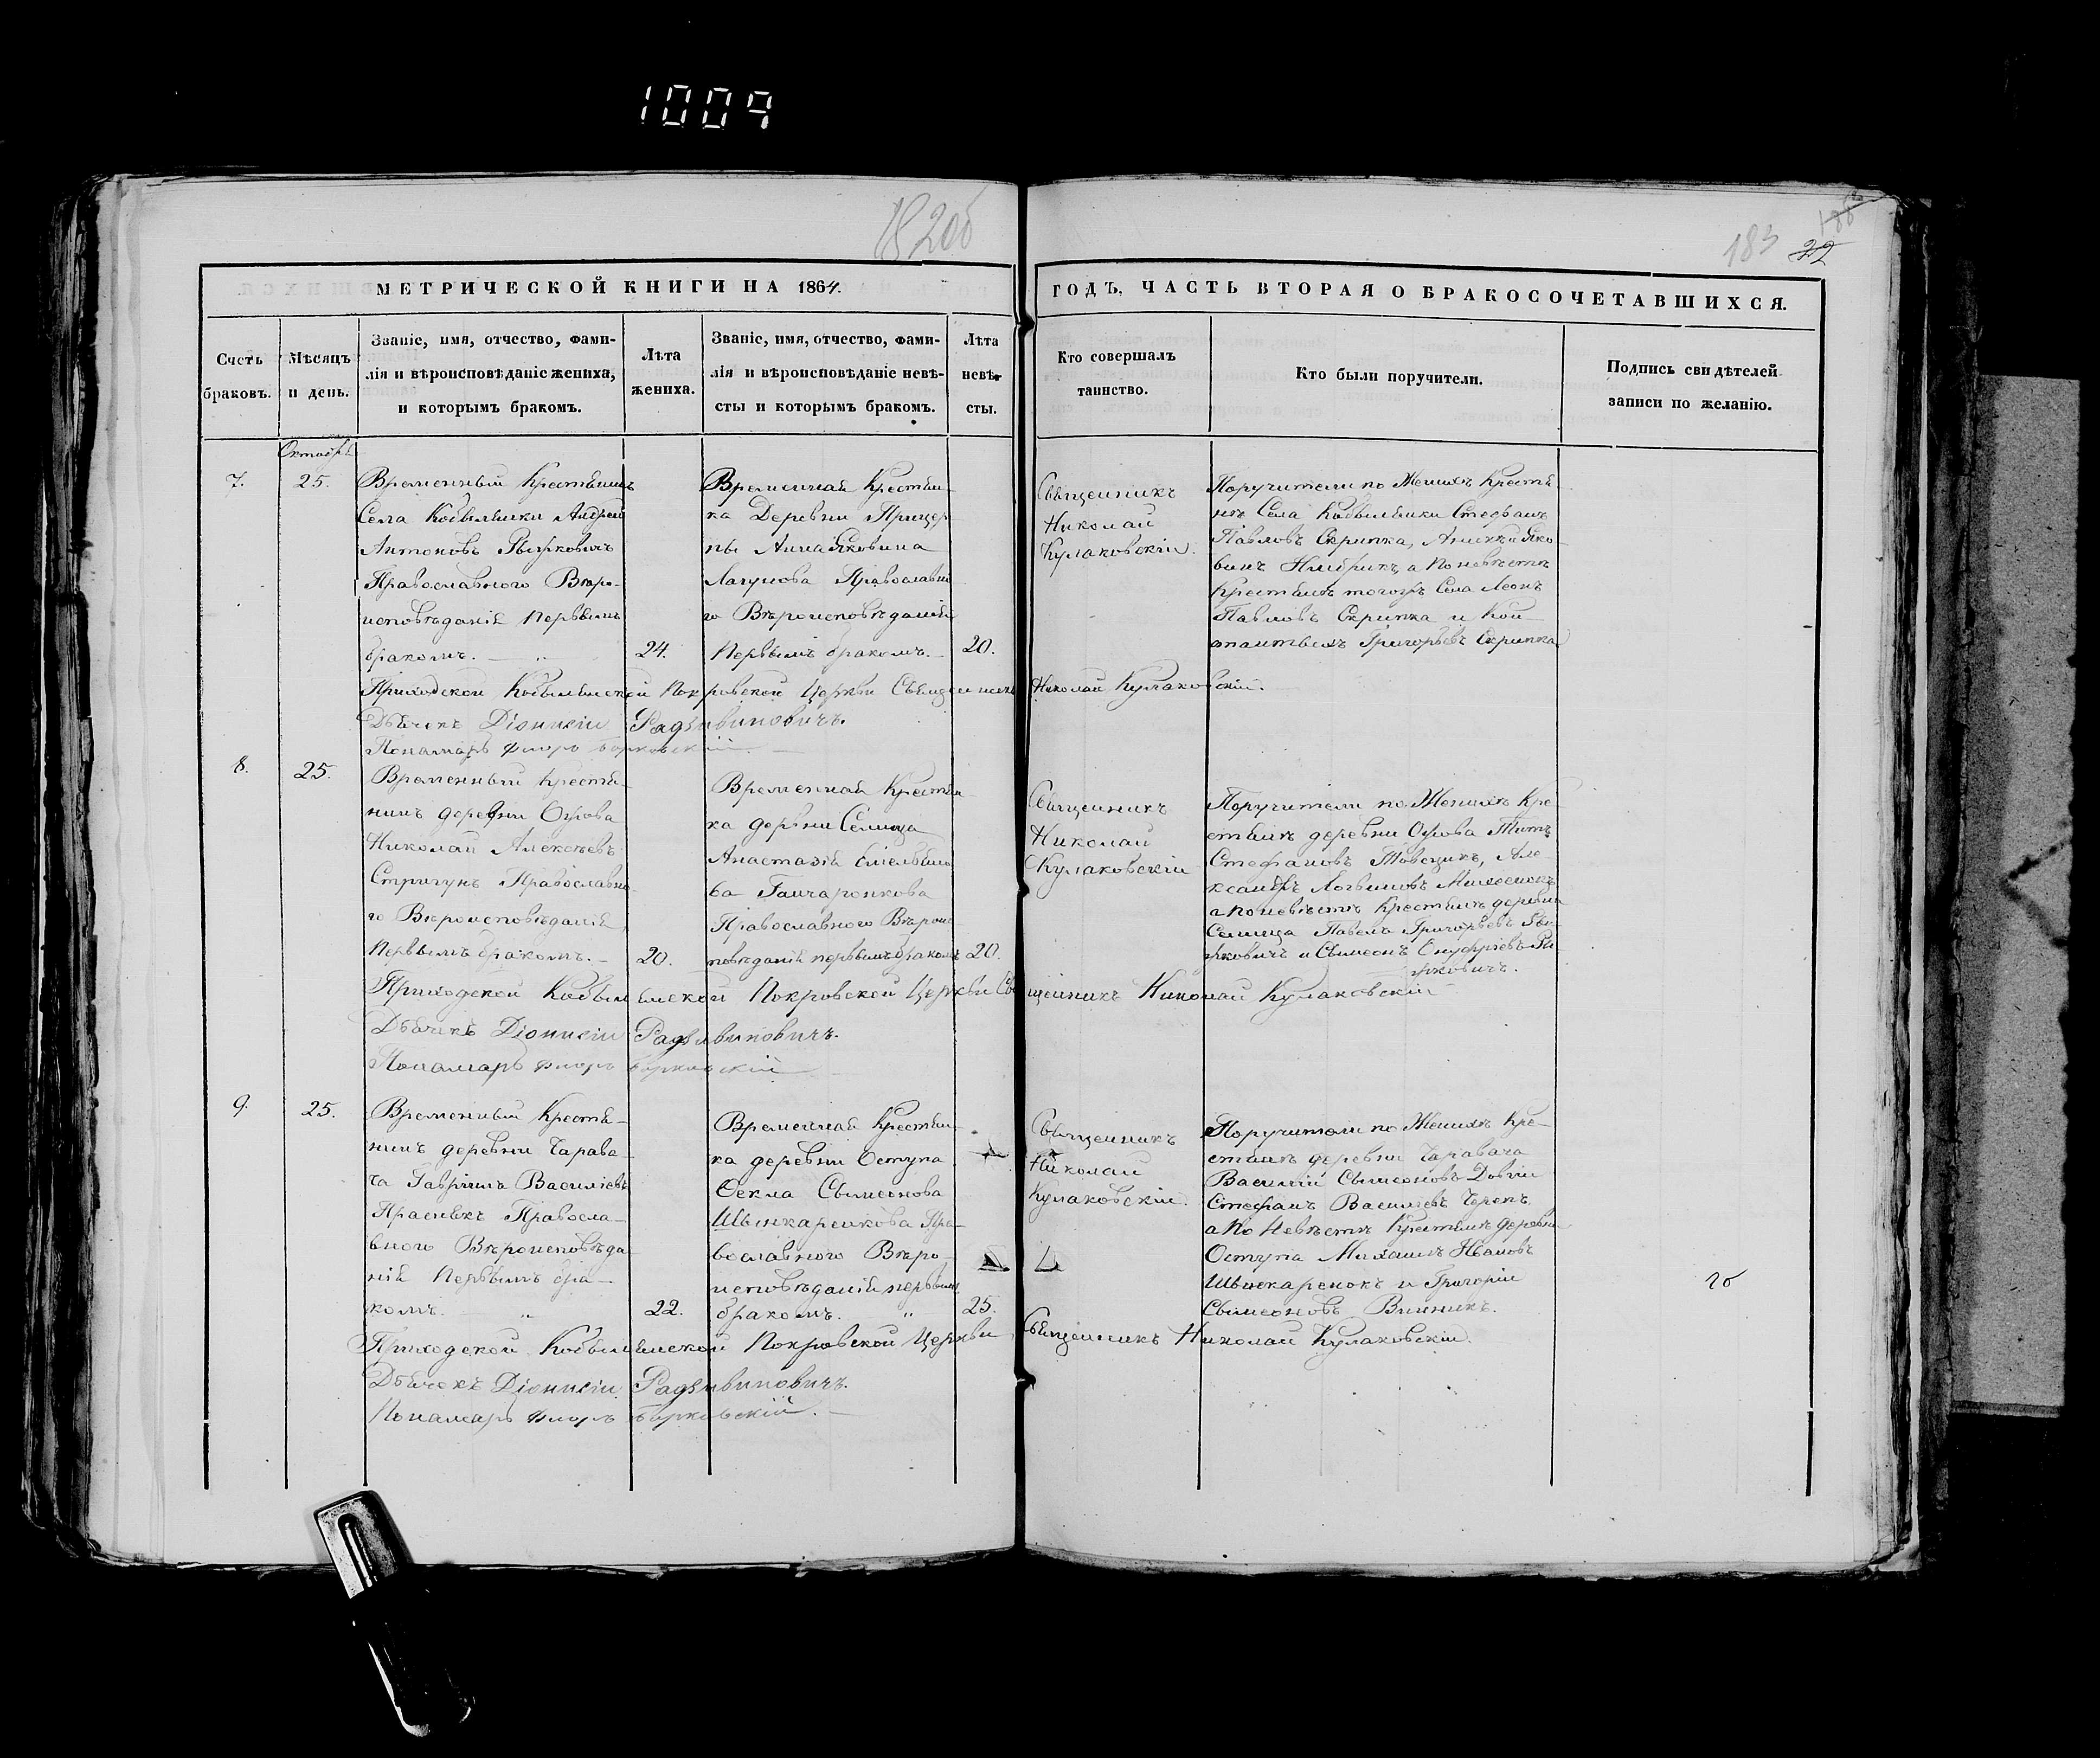 1009
182об
183
22
МЕТРИЧЕСКОЙ КНИГИ НА 1864.
ГОДЪ, ЧАСТЬ ВТОРАЯ О БРАКОСОЧЕТАВШИХСЯ.
Счетъ браковъ.
Мѣсяцъ и день.
Званіе, имя, отчество, фами-
лія и вѣроисповѣданіе жениха,
и которымъ бракомъ.
Лѣта жениха.
Званіе, имя, отчество, фами-
лія и вѣроисповѣданіе невѣ-
сты и которымъ бракомъ.
Лѣта невѣ-
сты.
Кто совершалъ
таинство.
Кто были поручители.
Подпись свидѣтелей
записи по желанію.
Октябрь
7.
25.
Временный Крестьянинъ
Села Кобыльчики Андрей
Антоновъ
Православного Вѣро-
исповѣданія Первымъ
бракомъ.
24.
Временная Крестьян-
ка Деревни
Анна Яковина
Лагунова Православно
го Вѣроисповѣданія
Первымъ бракомъ.
20.
Священникъ
Николай
Кулаковскій.
Поручители по Женихѣ Крестья
нѣ Села Стефанъ
Павловъ Скрипка,
а по невѣстѣ
Крестьянѣ тогожъ Села Леонъ
Павловъ Скрипка и Кон
стантынъ Григорьевъ Скрипка
Приходской Покровской Церкви Священникъ Николай Кулаковскій.
Дьячекъ Діонисій Радзивиновичъ.
Пономарь Флоръ Борковскій.
8.
25.
Временный Крестья-
нинъ деревни
Николай Алексѣевъ
Стригунъ Православно-
го Вѣроисповѣданія
Первымъ бракомъ.
20.
Временная Крестьян-
ка деревни Селища
Анастазія Емельяно
ва Ганчаронкова
Православного Вѣроис
повѣданія первымъ бракомъ
20.
Священникъ
Николай
Кулаковскій
Поручители по Женихѣ Кре-
стьянѣ деревни Титъ
Стефановъ Але-
ксандръ Логвиновъ
а по невѣстѣ Крестьянѣ деревни
Селища Павелъ Григорьевъ
и Сымеонъ Онуфріевъ
Приходской Покровской Церкви Священникъ Николай Кулаковскій
Дьячекъ Діонисій Радзивиновичъ.
Пономарь Флоръ Борковскій
9.
25.
Временный Крестья-
нинъ деревни Чарава-
ча Гавріилъ Василіевъ
Православ-
вного Вѣроисповѣда
нія Первымъ бра-
комъ.
22.
Временная Крестьян-
ка деревни Оступа
Ѳекла Сымеонова
Шынкаренкова Пра-
вославного Вѣро-
исповѣданія первымъ
бракомъ.
25.
Священникъ
Николай
Кулаковскій.
Поручители по Женихѣ Кре-
стьянѣ деревни Чаравача
Василій Сымеоновъ Довгій
Стефанъ Василіевъ
а по Невѣстѣ Крестьянѣ деревни
Оступа Михаилъ Ивановъ
Шынкаренокъ и Григорій
Сымеоновъ Винникъ.
Приходской Покровской Церкви Священникъ Николай Кулаковскій.
Дьячекъ Діонисій Радзивиновичъ.
Пономарь Флоръ Борковскій.